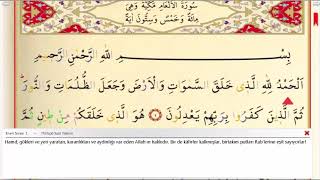 سُورَةُ الْاَنْعَامِ مَكِّيَّةٌ وَهِيَ
مِائَةٌ وَخَمْسٌ وَسِتُّونَ اٰيَةً
بِسْــــمِ اللّٰهِ الرَّحْمٰنِ الرَّحٖيمِ
اَلْحَمْدُ لِلّٰهِ الَّذٖي خَلَقَ السَّمٰوَاتِ وَالْاَرْضَ وَجَعَلَ الظُّلُمَاتِ وَالنُّورَؕ
ثُمَّ الَّذٖينَ كَفَرُوا بِرَبِّهِمْ يَعْدِلُونَ ﴿١﴾ هُوَ الَّذٖي خَلَقَكُمْ مِنْ طٖينٍ ثُمَّ
Hamd, gökleri ve yeri yaratan, karanlıkları ve aydınlığı var eden Allah'ın hakkıdır. Bir de kâfirler kalkmışlar, birtakım putları Rab'lerine eşit sayıyorlar!